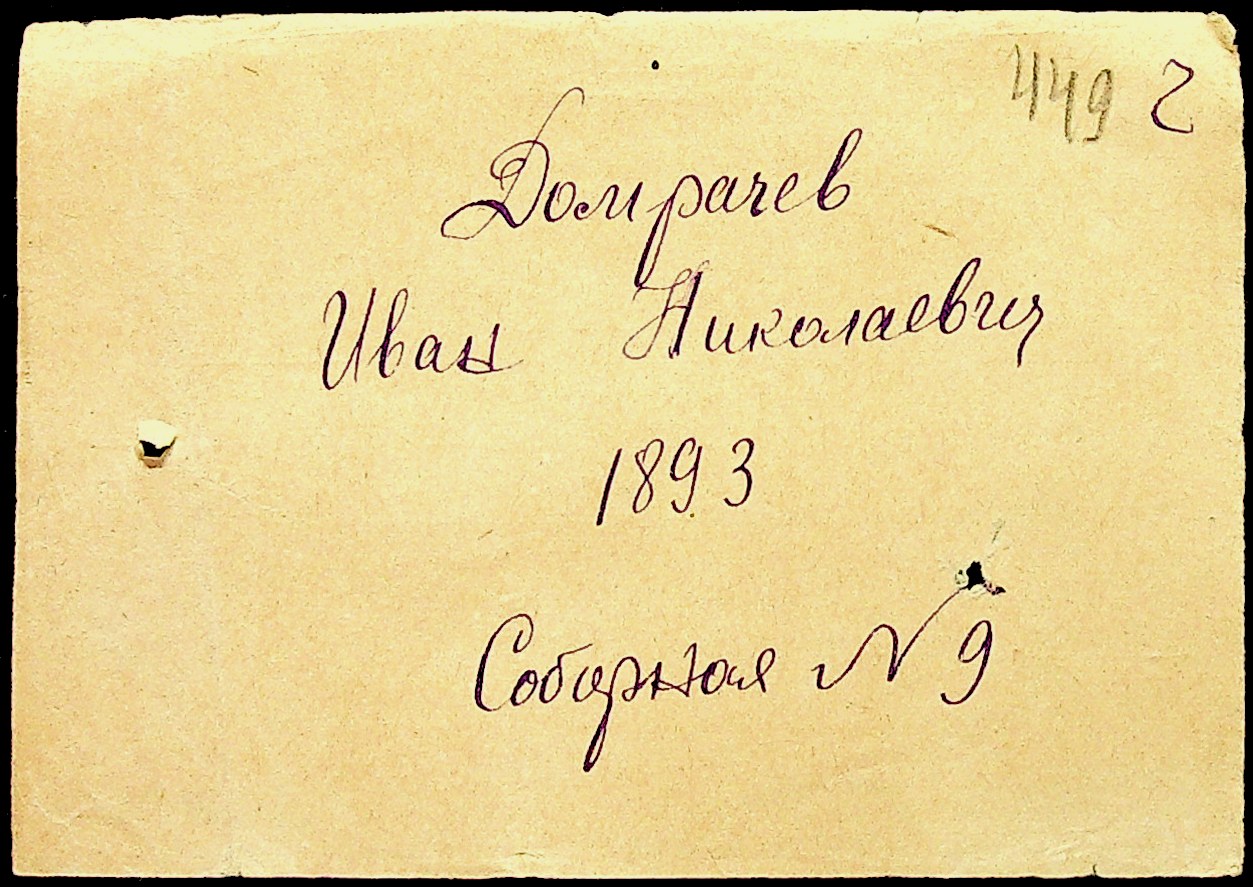 449 2
Домрачев
Иван Николаевич
1893
Соборная N 9